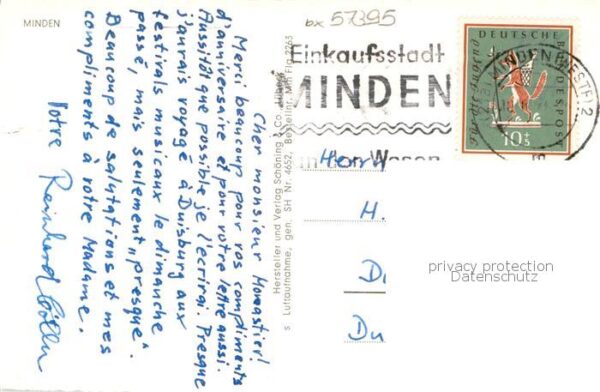 MINDEN
bx 57395
Einkaufsstadt
MINDEN
an der Weser
MINDEN (WESTF) 2
DEUTSCHE
BUNDESPOST
Für die Jugend
10+5
Cher monsieur Monastier!
Merci beaucoup pour vos compliments
d'anniversaire et pour votre lettre aussi.
Aussitôt que possible je l'écrirai. Presque
j'aurais voyagé à Duisburg aux
festivals musicaux le dimanche
passé, mais seulement „presque“.
Beaucoup de salutations et mes
compliments à votre Madame.
Votre
Reinhard
Hersteller und Verlag Schöning & Co., Lübeck
s Luftaufnahme, gen. SH Nr. 4652, Bestellnr. Min Flg 2265
Herrn
H.
D
Du
privacy protection
Datenschutz